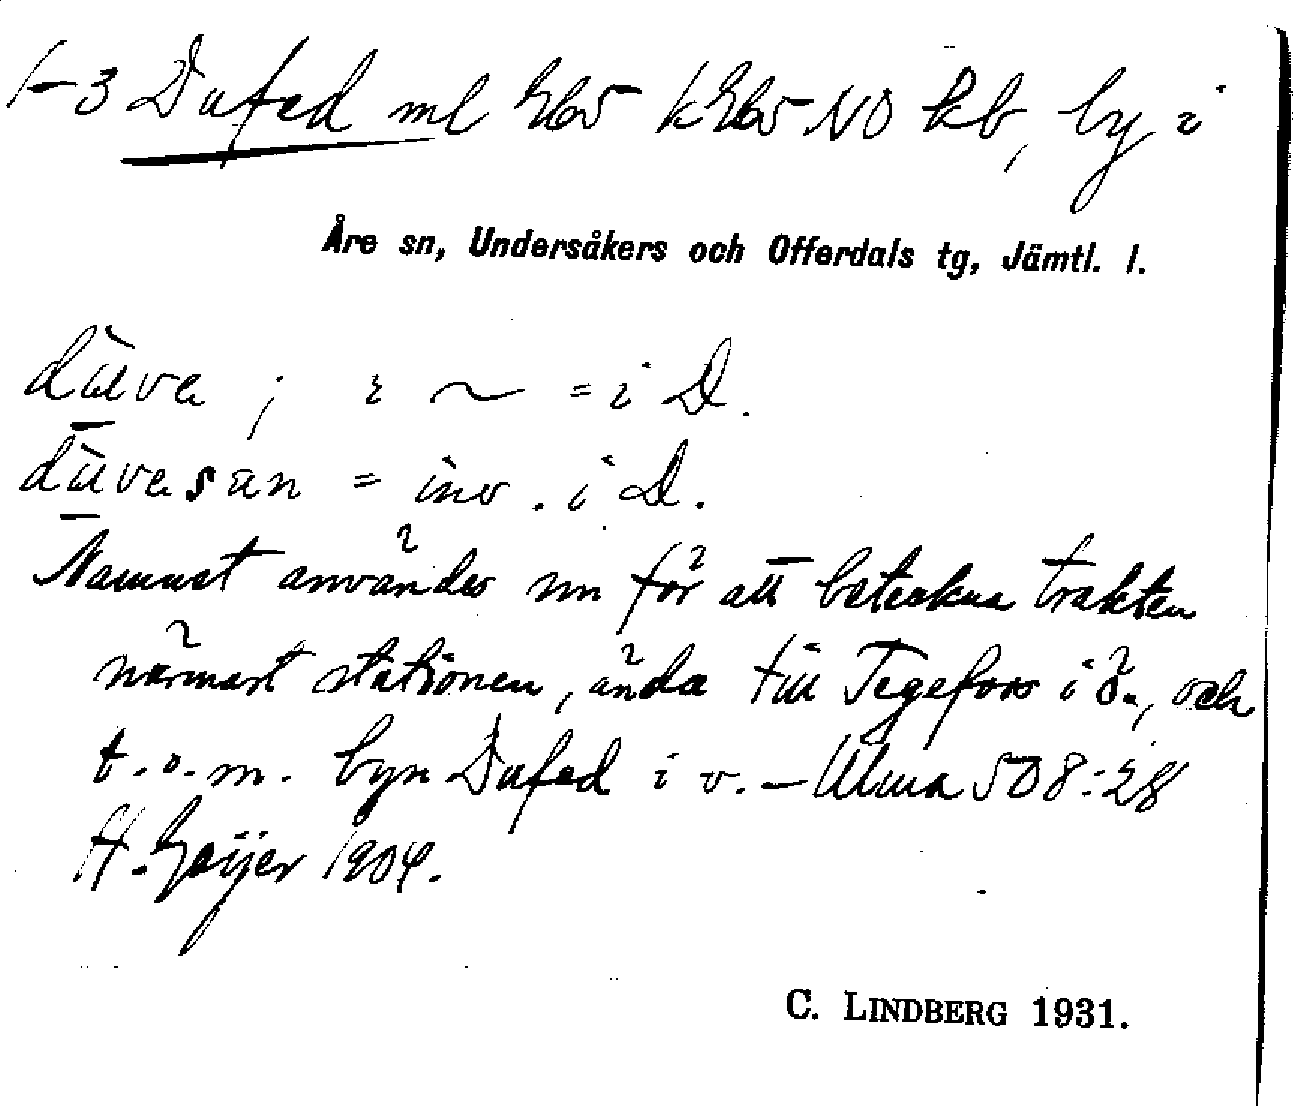 1-3 Dufed ml Eb5 kEb5 NO kb, by i
Åre sn, Undersåkers och Offerdals tg, Jämtl. l.
dùva ; i ~ = i D.
dùvasan = inv. i D.
Namnet användes nu för att beteckna trakten
närmast stationen, ända till Tegefors i ö., och
t.o.m. byn Dufed i v. – Ulma 508:28
H. Geijer 1904.
C. LINDBERG 1931.